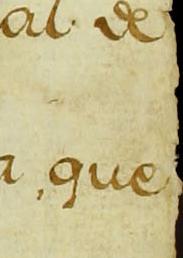 al. de
a, que